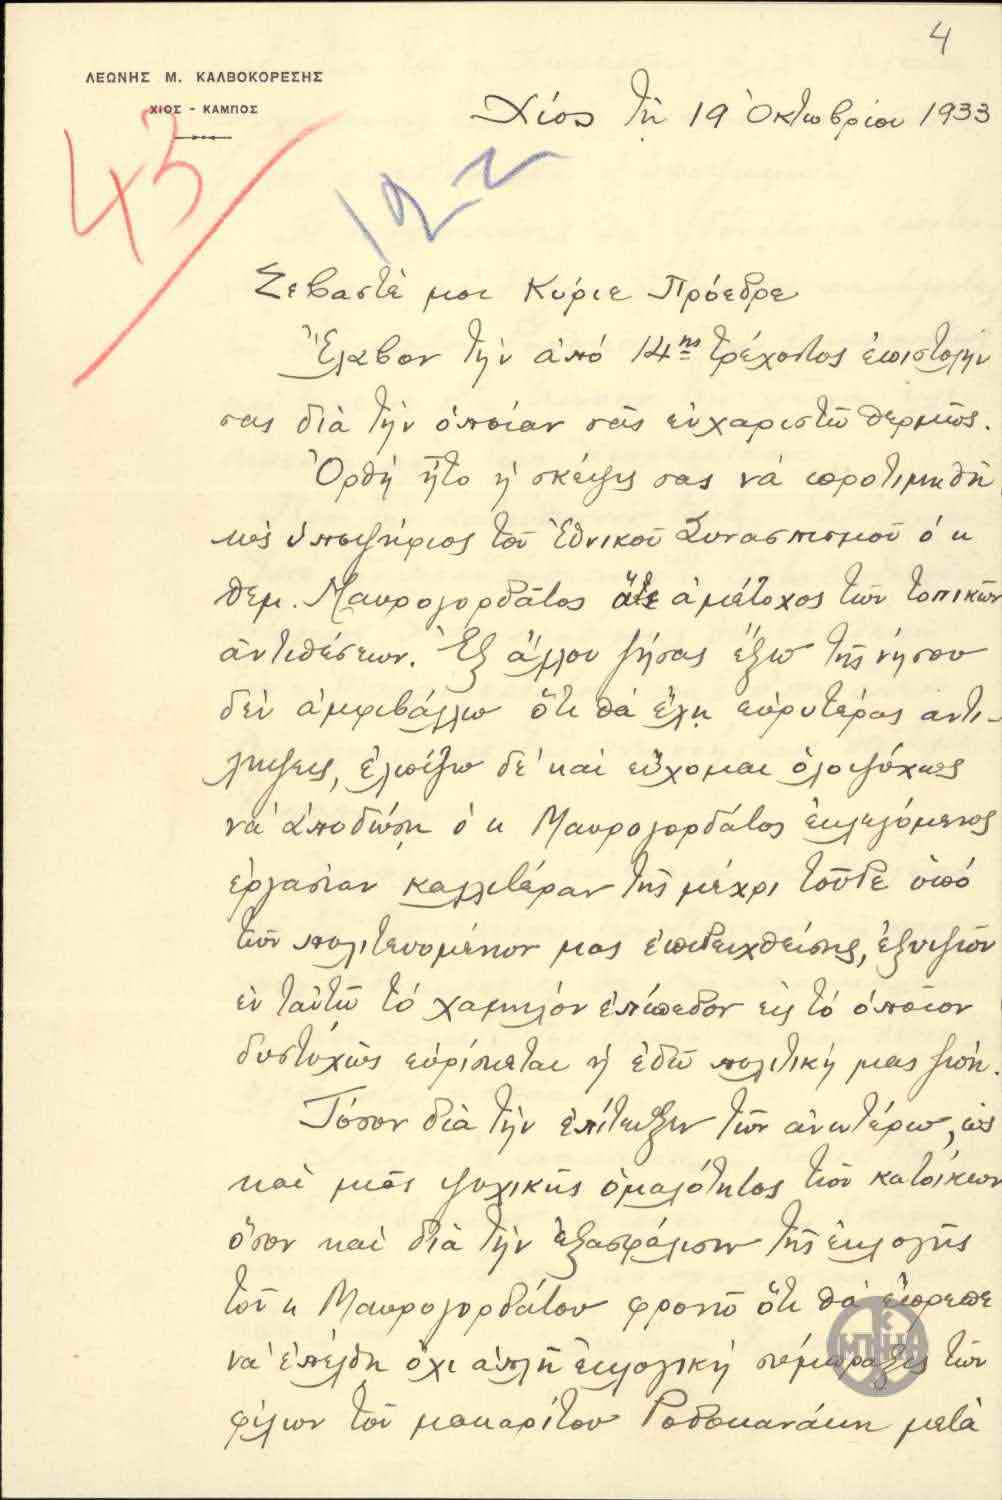 4
ΛΕΩΝΗΣ Μ. ΚΑΛΒΟΚΟΡΕΣΗΣ
ΧΙΟΣ - ΚΑΜΠΟΣ
Χίος τῇ 19 Ὀκτωβρίου 1933
45
122
Σεβαστέ μοι Κύριε Πρόεδρε
Ἔλαβον τὴν ἀπό 14ης τρέχοντος ἐπιστολήν
σας διὰ τὴν ὁποίαν σᾶς εὐχαριστῶ θερμῶς.
Ὀρθή ἦτο ἡ σκέψις σας νά προτιμηθῆ
ὡς ὑποψήφιος τοῦ Ἐθνικοῦ Συνασπισμοῦ ὁ κ
Θεμ. Μαυρογορδᾶτος ἅτε ἀμέτοχος τῶν τοπικῶν
ἀντιθέσεων. Ἐξ ἄλλου ζήσας ἔξω τῆς νήσου
δέν ἀμφιβάλλω ὅτι θά ἔχῃ εὐρυτέρας ἀντι-
λήψεις, ἐλπίζω δέ καί εὔχομαι ὁλοψύχως
νά ἀποδώσῃ ὁ κ Μαυρογορδάτος ἐκλεγόμενος
ἐργασίαν καλλιτέραν τῆς μέχρι τοῦδε ὑπό
τῶν πολιτευομένων μας ἐπιδειχθείσης, ἐξυψῶν
ἐν ταὐτῶ τό χαμηλόν ἐπίπεδον εἰς τό ὁποῖον
δυστυχῶς εὑρίσκεται ἡ ἐδῶ πολιτική μας ζωή.
Τόσον διὰ τὴν ἐπίτευξιν τῶν ἀνωτέρω, ὡς
καί μιᾶς ψυχικῆς ὁμαλότητος τῶν κατοίκων
ὅσον καί διὰ τὴν ἐξασφάλισιν τῆς ἐκλογῆς
τοῦ κ Μαυρογορδάτου φρονῶ ὅτι θά ἔπρεπε
νά ἐπέλθῃ ὄχι ἁπλῆ ἐκλογική σύμπραξις τῶν
φίλων τοῦ μακαρίτου Ροδοκανάκη μετά
ΜΠΗΚ